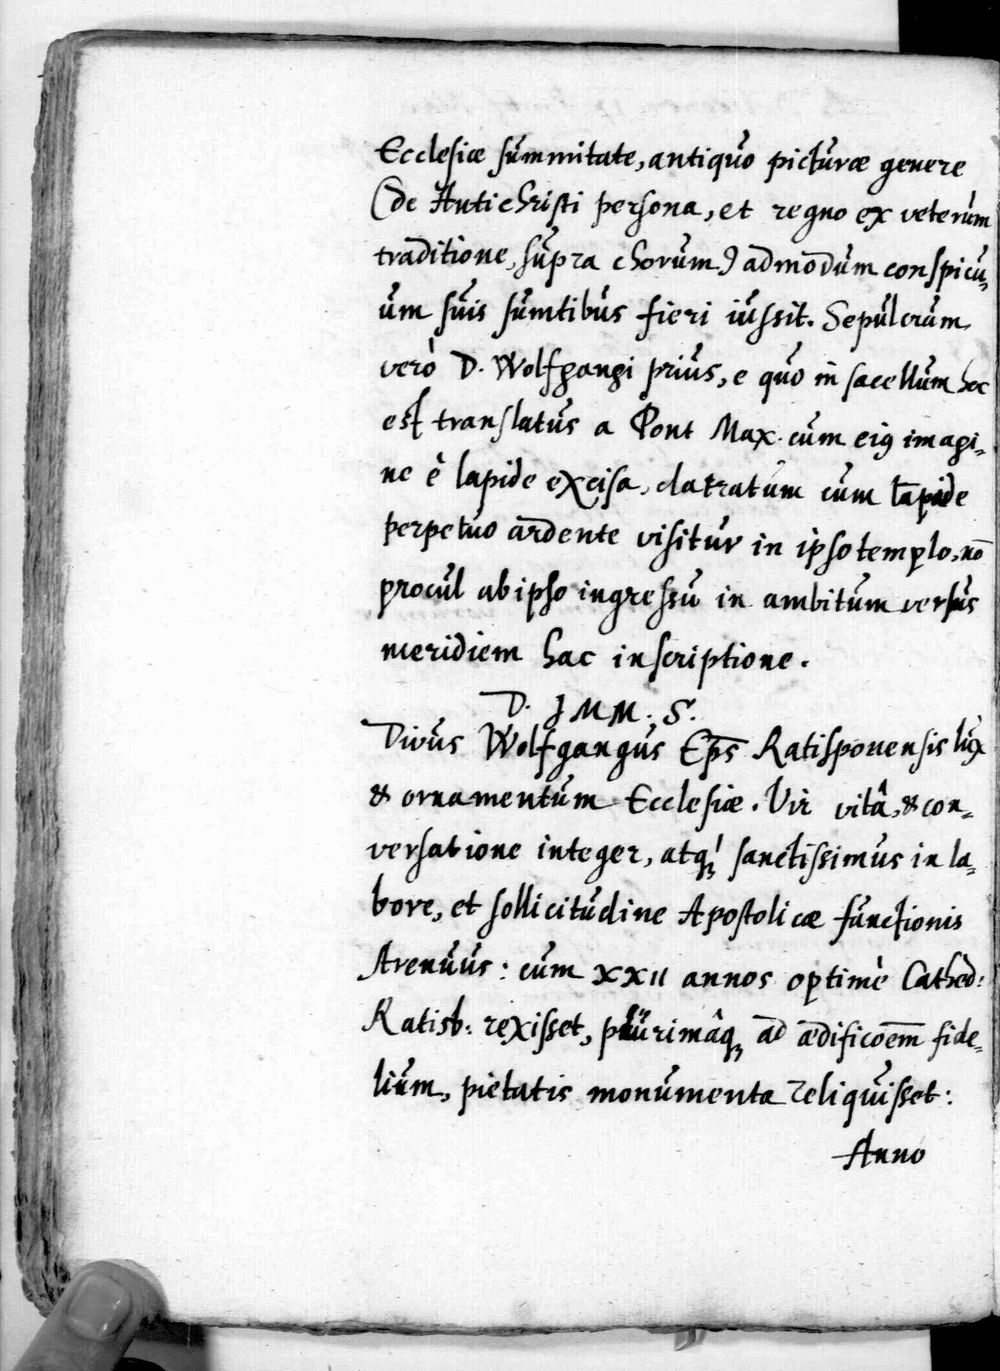 Ecclesiæ summitate, antiquo picturæ genere
(de Antichristi persona, et regno ex veterum
traditione, supra chorum) admodum conspicu-
um suis sumtibus fieri iussit. Sepulcrum
verò D. Wolfgangi prius, e quo in sacellum hoc
est translatus a Pont Max. cum eiꝰ imagi-
ne è lapide excisa, clatratum cum lapide
perpetuo ardente visitur in ipso templo, nō
procul ab ipso ingressu in ambitum versus
meridiem hac inscriptione.
D. IMM. S.
Divus Wolfgangus Ep̄s Ratisponensis lux
& ornamentum Ecclesiæ. Vir vitâ, & con-
versatione integer, atqꝫ sanctissimus in la-
bore, et sollicitudine Apostolicæ functionis
strenuus: cum XXII annos optimè Cathed:
Ratisb: rexisset, plurimâqꝫ ad ædificōem fide-
lium, pietatis monumenta reliquisset:
Anno